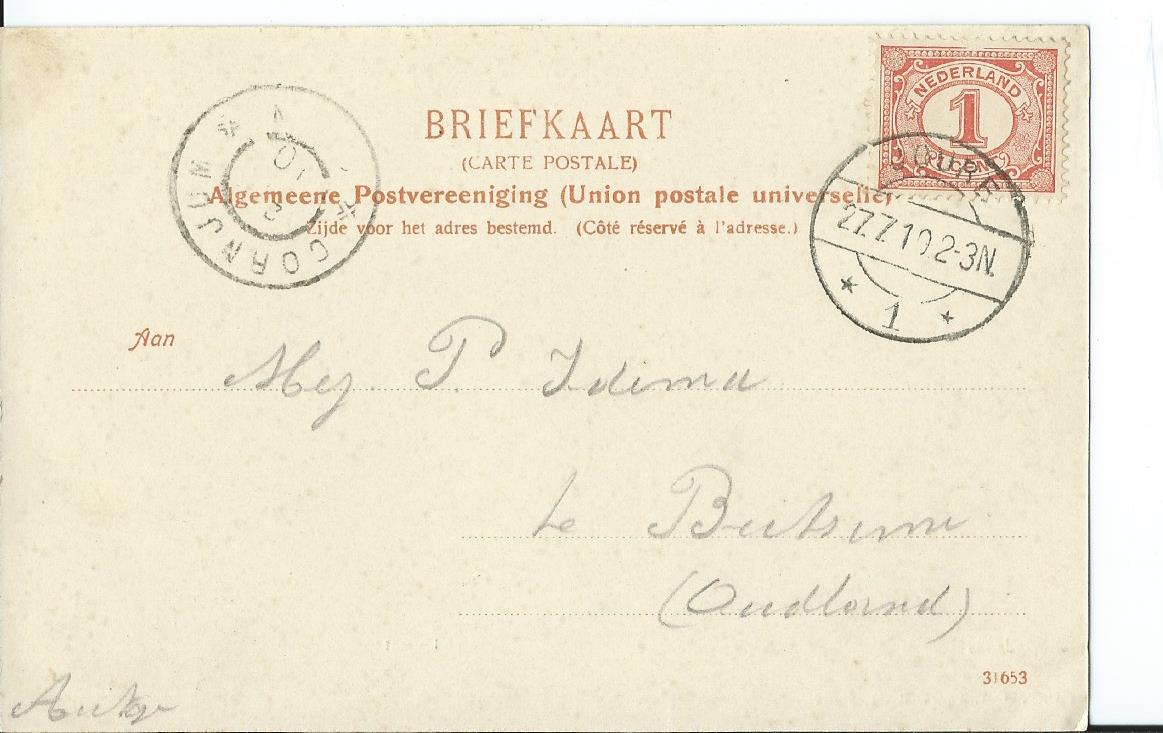 NEDERLAND
1
BRIEFKAART
(CARTE POSTALE)
Algemeene Postvereeniging (Union postale universelle)
Zijde voor het adres bestemd. (Côté réservé à l'adresse.)
CORNJUM
27.7.10.2-3N.
1
Aan
Mej. P. Idema
te Beetsum
(Oudland)
31653
Aukje